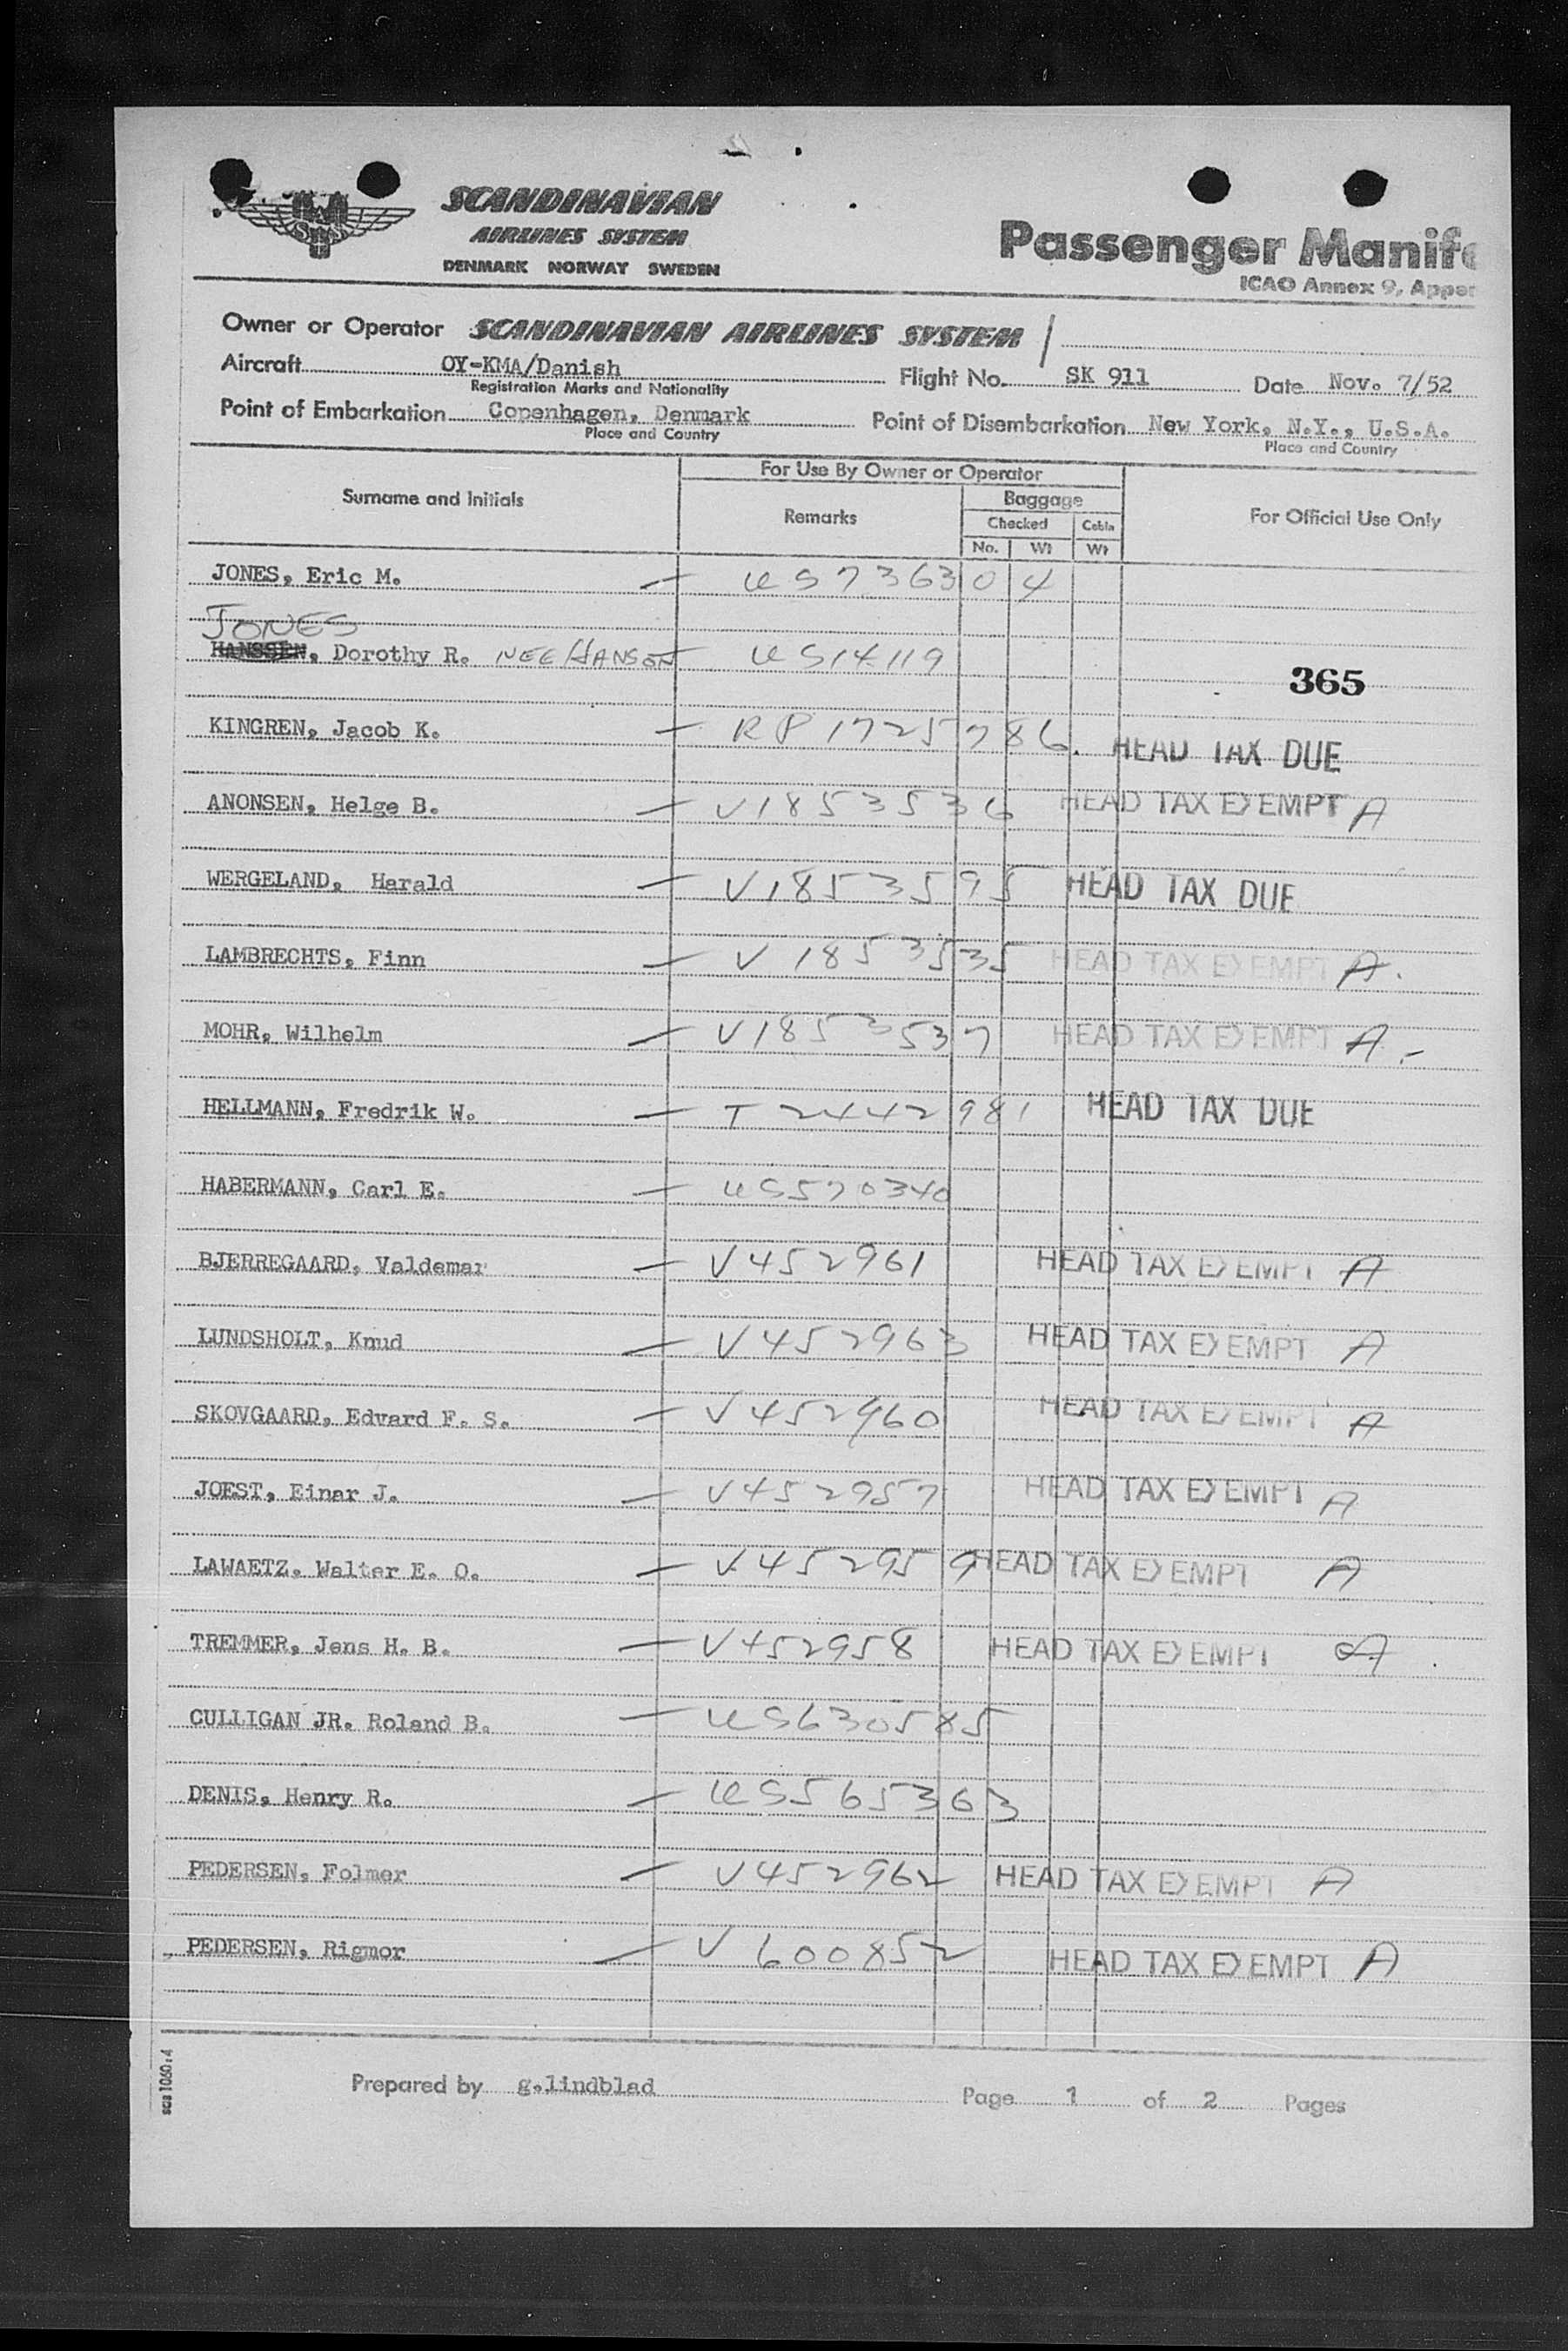 SAS
SCANDINAVIAN
AIRLINES SYSTEM
DENMARK NORWAY SWEDEN
Passenger Manife
ICAO Annex 9, Appen
Owner or Operator SCANDINAVIAN AIRLINES SYSTEM /
Aircraft OY-KMA/Danish Flight No. SK 911 Date Nov. 7/52
Registration Marks and Nationality
Point of Embarkation Copenhagen, Denmark Point of Disembarkation New York, N.Y., U.S.A.
Place and Country Place and Country
For Use By Owner or Operator
Surname and Initials Remarks Baggage For Official Use Only
Checked Cabin
No. Wt Wt
JONES, Eric M. — US736304
JONES
HANSSEN, Dorothy R. NEE HANSON — US14119
365
KINGREN, Jacob K. — RP1725786. HEAD TAX DUE
ANONSEN, Helge B. — V1853536 HEAD TAX EXEMPT A
WERGELAND, Harald — V1853595 HEAD TAX DUE
LAMBRECHTS, Finn — V1853535 HEAD TAX EXEMPT A.
MOHR, Wilhelm — V1853537 HEAD TAX EXEMPT A.-
HELLMANN, Fredrik W. — T2442981 HEAD TAX DUE
HABERMANN, Carl E. — US570340
BJERREGAARD, Valdemar — V452961 HEAD TAX EXEMPT A
LUNDSHOLT, Knud — V452963 HEAD TAX EXEMPT A
SKOVGAARD, Edvard F. S. — V452960 HEAD TAX EXEMPT A
JOEST, Einar J. — V452957 HEAD TAX EXEMPT A
LAWAETZ, Walter E. O. — V452959 HEAD TAX EXEMPT A
TREMMER, Jens H. B. — V452958 HEAD TAX EXEMPT A
CULLIGAN JR. Roland B. — US630585
DENIS, Henry R. — US565363
PEDERSEN, Folmer — V452962 HEAD TAX EXEMPT A
PEDERSEN, Rigmor — V600852 HEAD TAX EXEMPT A
Prepared by g.lindblad Page 1 of 2 Pages